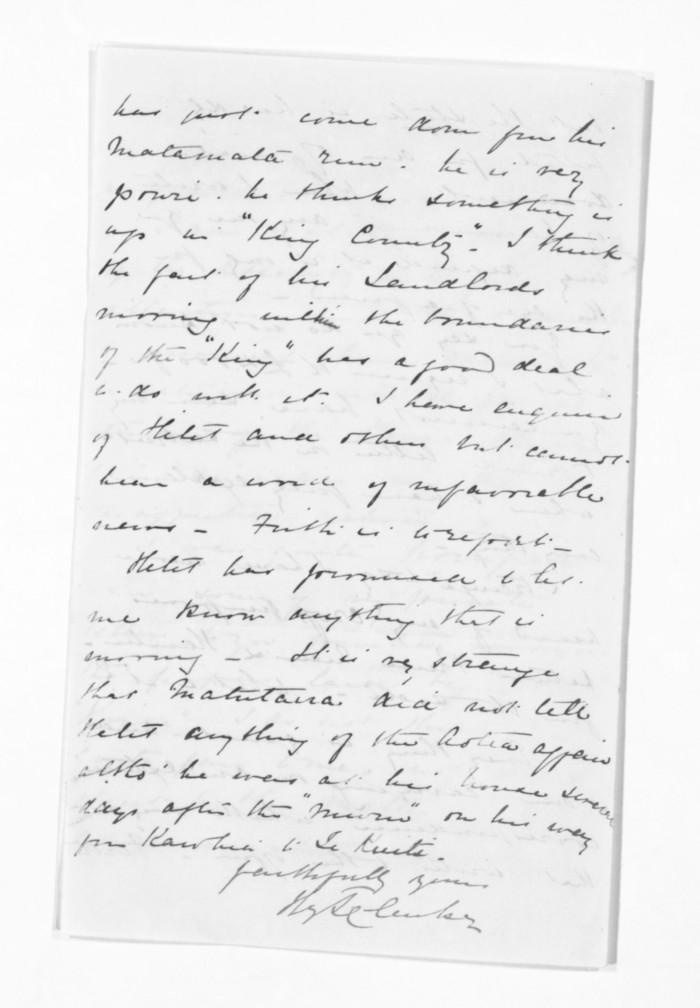 has just come down from his
Matamata run. he is very
pouri. he thinks something is
up in "King Country". I think
the fact of his Landlords
moving within the boundaries
of the "King" has a good deal
to do with it. I have enquired
of Hetet and others but cannot
hear a word of unfavorable
news – Firth is to report –
Hetet has promised to let
me know anything that is
moving – It is very strange
that Matutaera did not tell
Hetet anything of the Aotea affair
altho' he was at his house several
days after the on his way
from Kawhia to Te Kuiti.
faithfully yours
Hy T Clarke